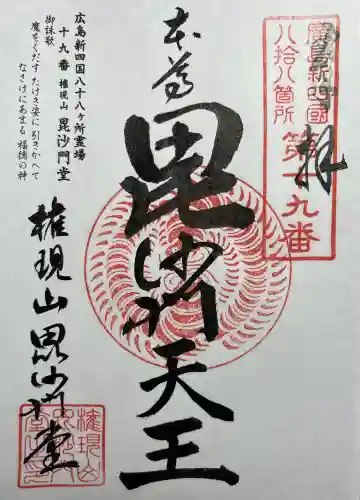 廣島新四國
八拾八箇所
第十九番
奉拝
本尊
毘沙門天王
広島新四国八十八ヶ所霊場
十九番 権現山 毘沙門堂
御詠歌
魔をくだす たけき姿に 引きかへて
なさけにあまる 福徳の神
権現山毘沙門堂